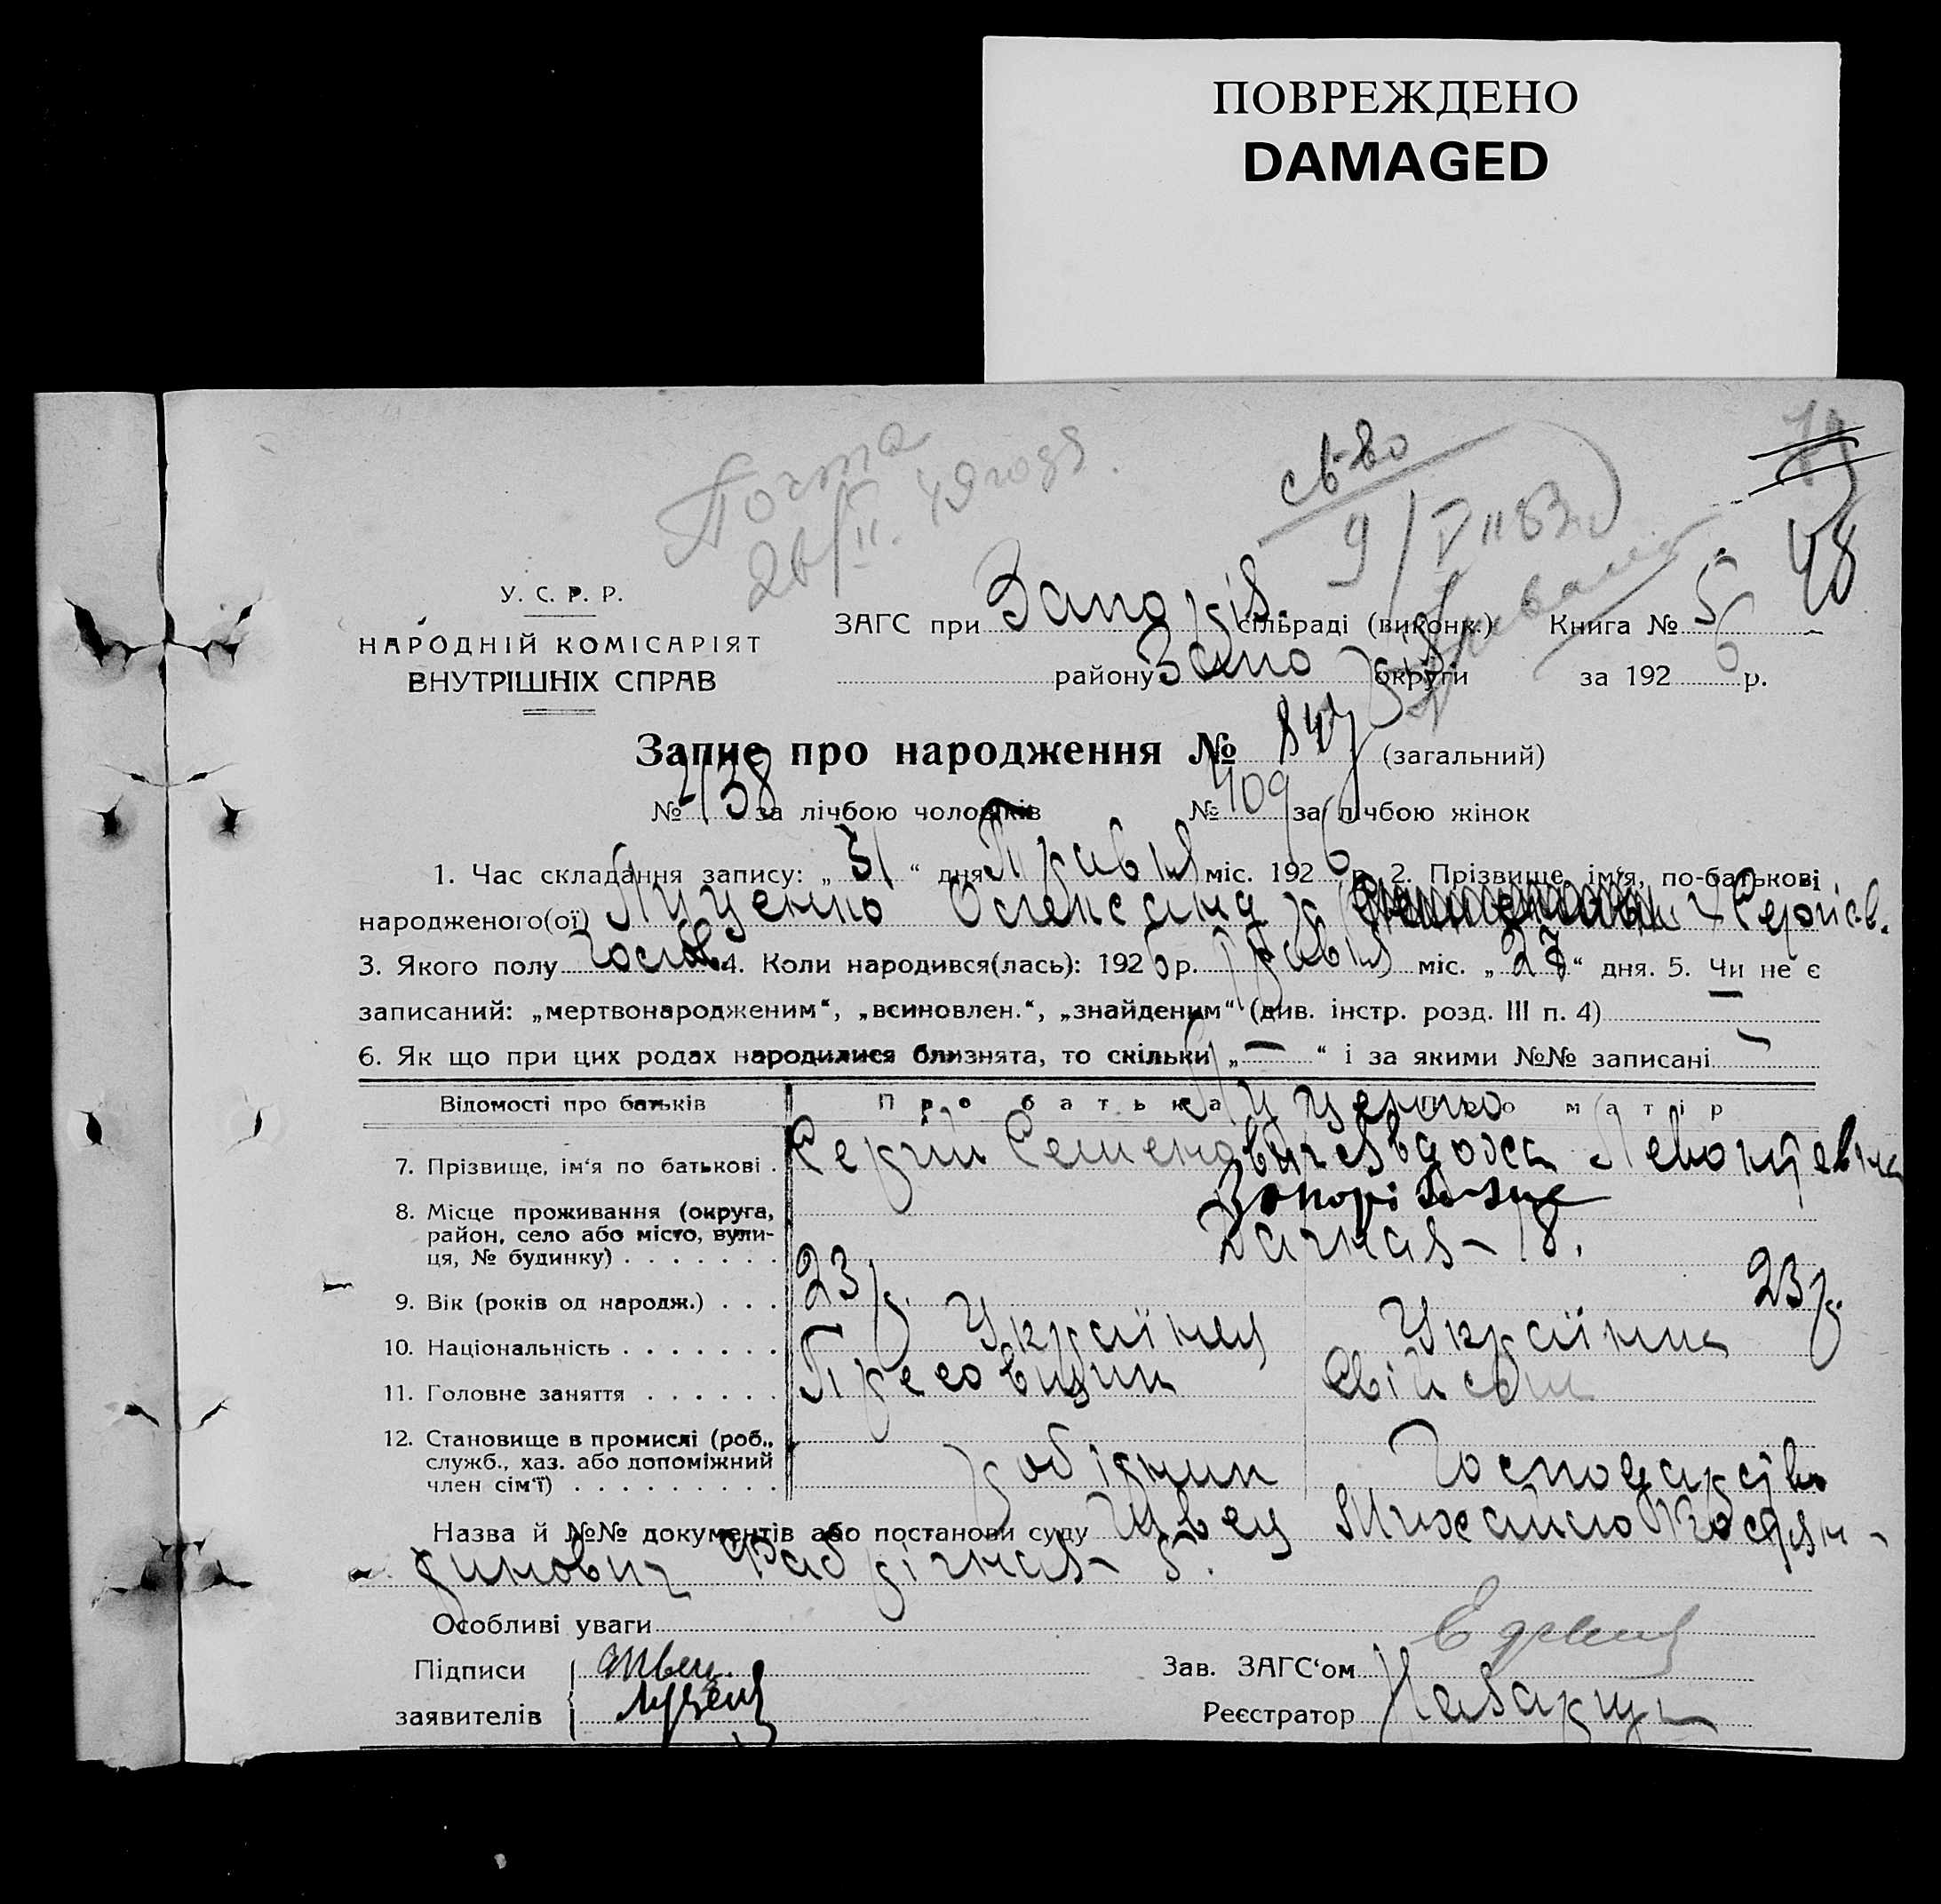 ПОВРЕЖДЕНО
DAMAGED
Почта
26/II. 49 года.
св-во
9/V 1183
48
У. С. Р. Р.
НАРОДНІЙ КОМІСАРІЯТ
ВНУТРІШНІХ СПРАВ
ЗАГС при Запоріз. сільраді (виконк.) Книга № 5
району Запоріз округи за 192 6 р.
Запис про народження № 847 (загальний)
№ 438 за лічбою чоловіків № 409 за лічбою жінок
1. Час складання запису: „ 31 “ дня Травня міс. 192 6 р. 2. Прізвище, ім'я, по-батькові
народженого(ої) Луценко Олександр Сергієв.
3. Якого полу чолов. 4. Коли народився(лась): 192 6 р. Травня міс. „ 27 “ дня. 5. Чи не є
записаний: „мертвонародженим“, „всиновлен.“, „знайденим“ (див. інстр. розд. III п. 4) —
6. Як що при цих родах народилися близнята, то скільки „ — “ і за якими №№ записані —
Відомості про батьків Про батька Про матір
Луценко
7. Прізвище, ім'я по батькові . Сергій Семенович Явдоха Левонтевна
8. Місце проживання (округа, район, село або місто, вули-ця, № будинку) . . . . . . . Запоріжжє
Дачная - 18.
9. Вік (років од народж.) . . . 23 р. 23 р.
10. Національність . . . . . . . Українец Українка
11. Головне заняття . . . . . . Пресовщик Свійське
12. Становище в промислі (роб., служб., хаз. або допоміжний член сім'ї) . . . . . . . . . робітник Господарство
Назва й №№ документів або постанови суду Швец Михайло Костян-
тинович Фабрічная - 5.
Особливі уваги
Підписи Швец.
заявителів
Зав. ЗАГС'ом
Реєстратор